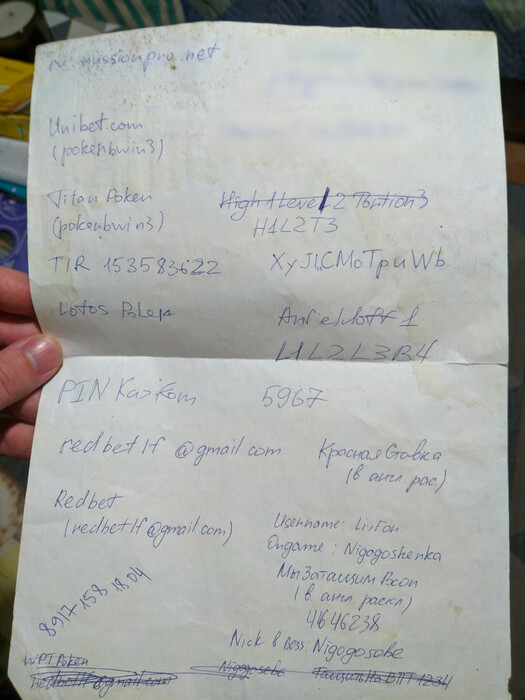 ru.russionpro.net
Unibet.com
(pokerbwin3)
Titan Poker
(pokerbwin3)
High 1 Level 2 Tortion3
H1L2T3
TIR 153583622
ХуЛиСМоТриШЬ
Lotos Poker
1
H1L2L3B4
PIN
5967
redbetlf@gmail.com
Красная Ставка
(в англ. рас)
Redbet
(redbetlf@gmail.com)
Username:
Ongame: Nigogoshenka
МыЗатащим
(в англ раскл)
4646238
8917 158 18 04
Nick в Boss: Nigogosobe
WPT Poker
redbetlf@gmail.com
Nigogosobe
1234